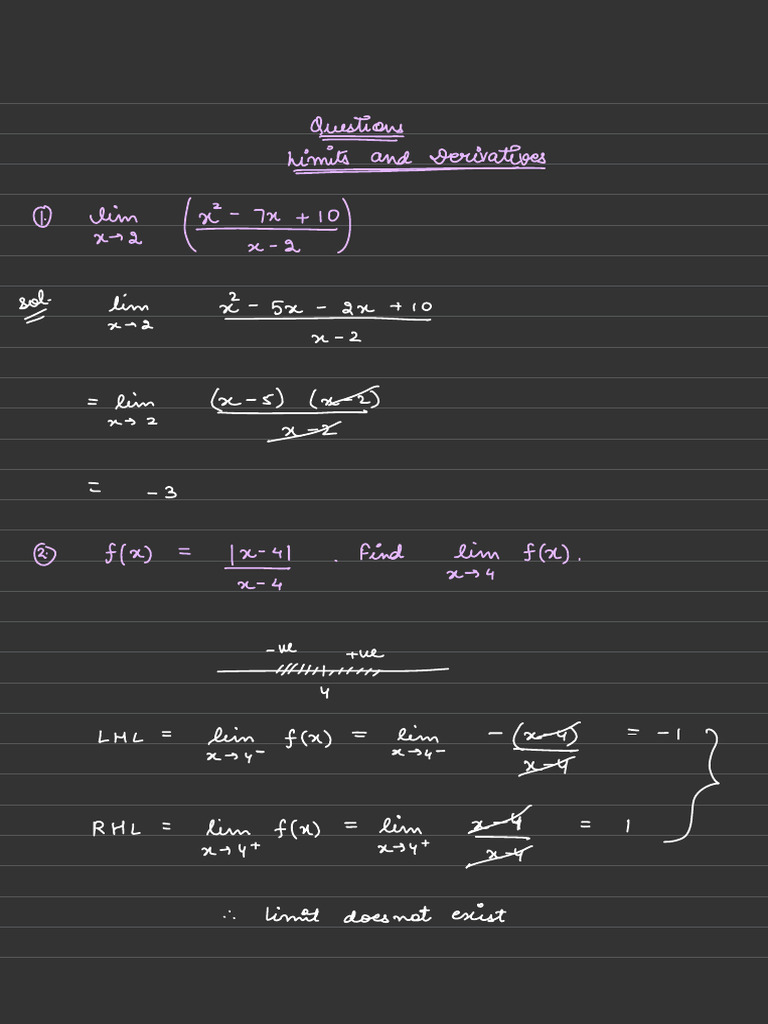 Questions
Limits and Derivatives
1. lim x→2 ( (x² - 7x + 10) / (x - 2) )
Sol. lim x→2 (x² - 5x - 2x + 10) / (x - 2)
= lim x→2 (x - 5) (x - 2) / (x - 2)
= -3
2. f(x) = |x - 4| / (x - 4) . Find lim x→4 f(x).
-ve +ve
4
LHL = lim x→4⁻ f(x) = lim x→4⁻ -(x - 4) / (x - 4) = -1
RHL = lim x→4⁺ f(x) = lim x→4⁺ (x - 4) / (x - 4) = 1
∴ Limit does not exist